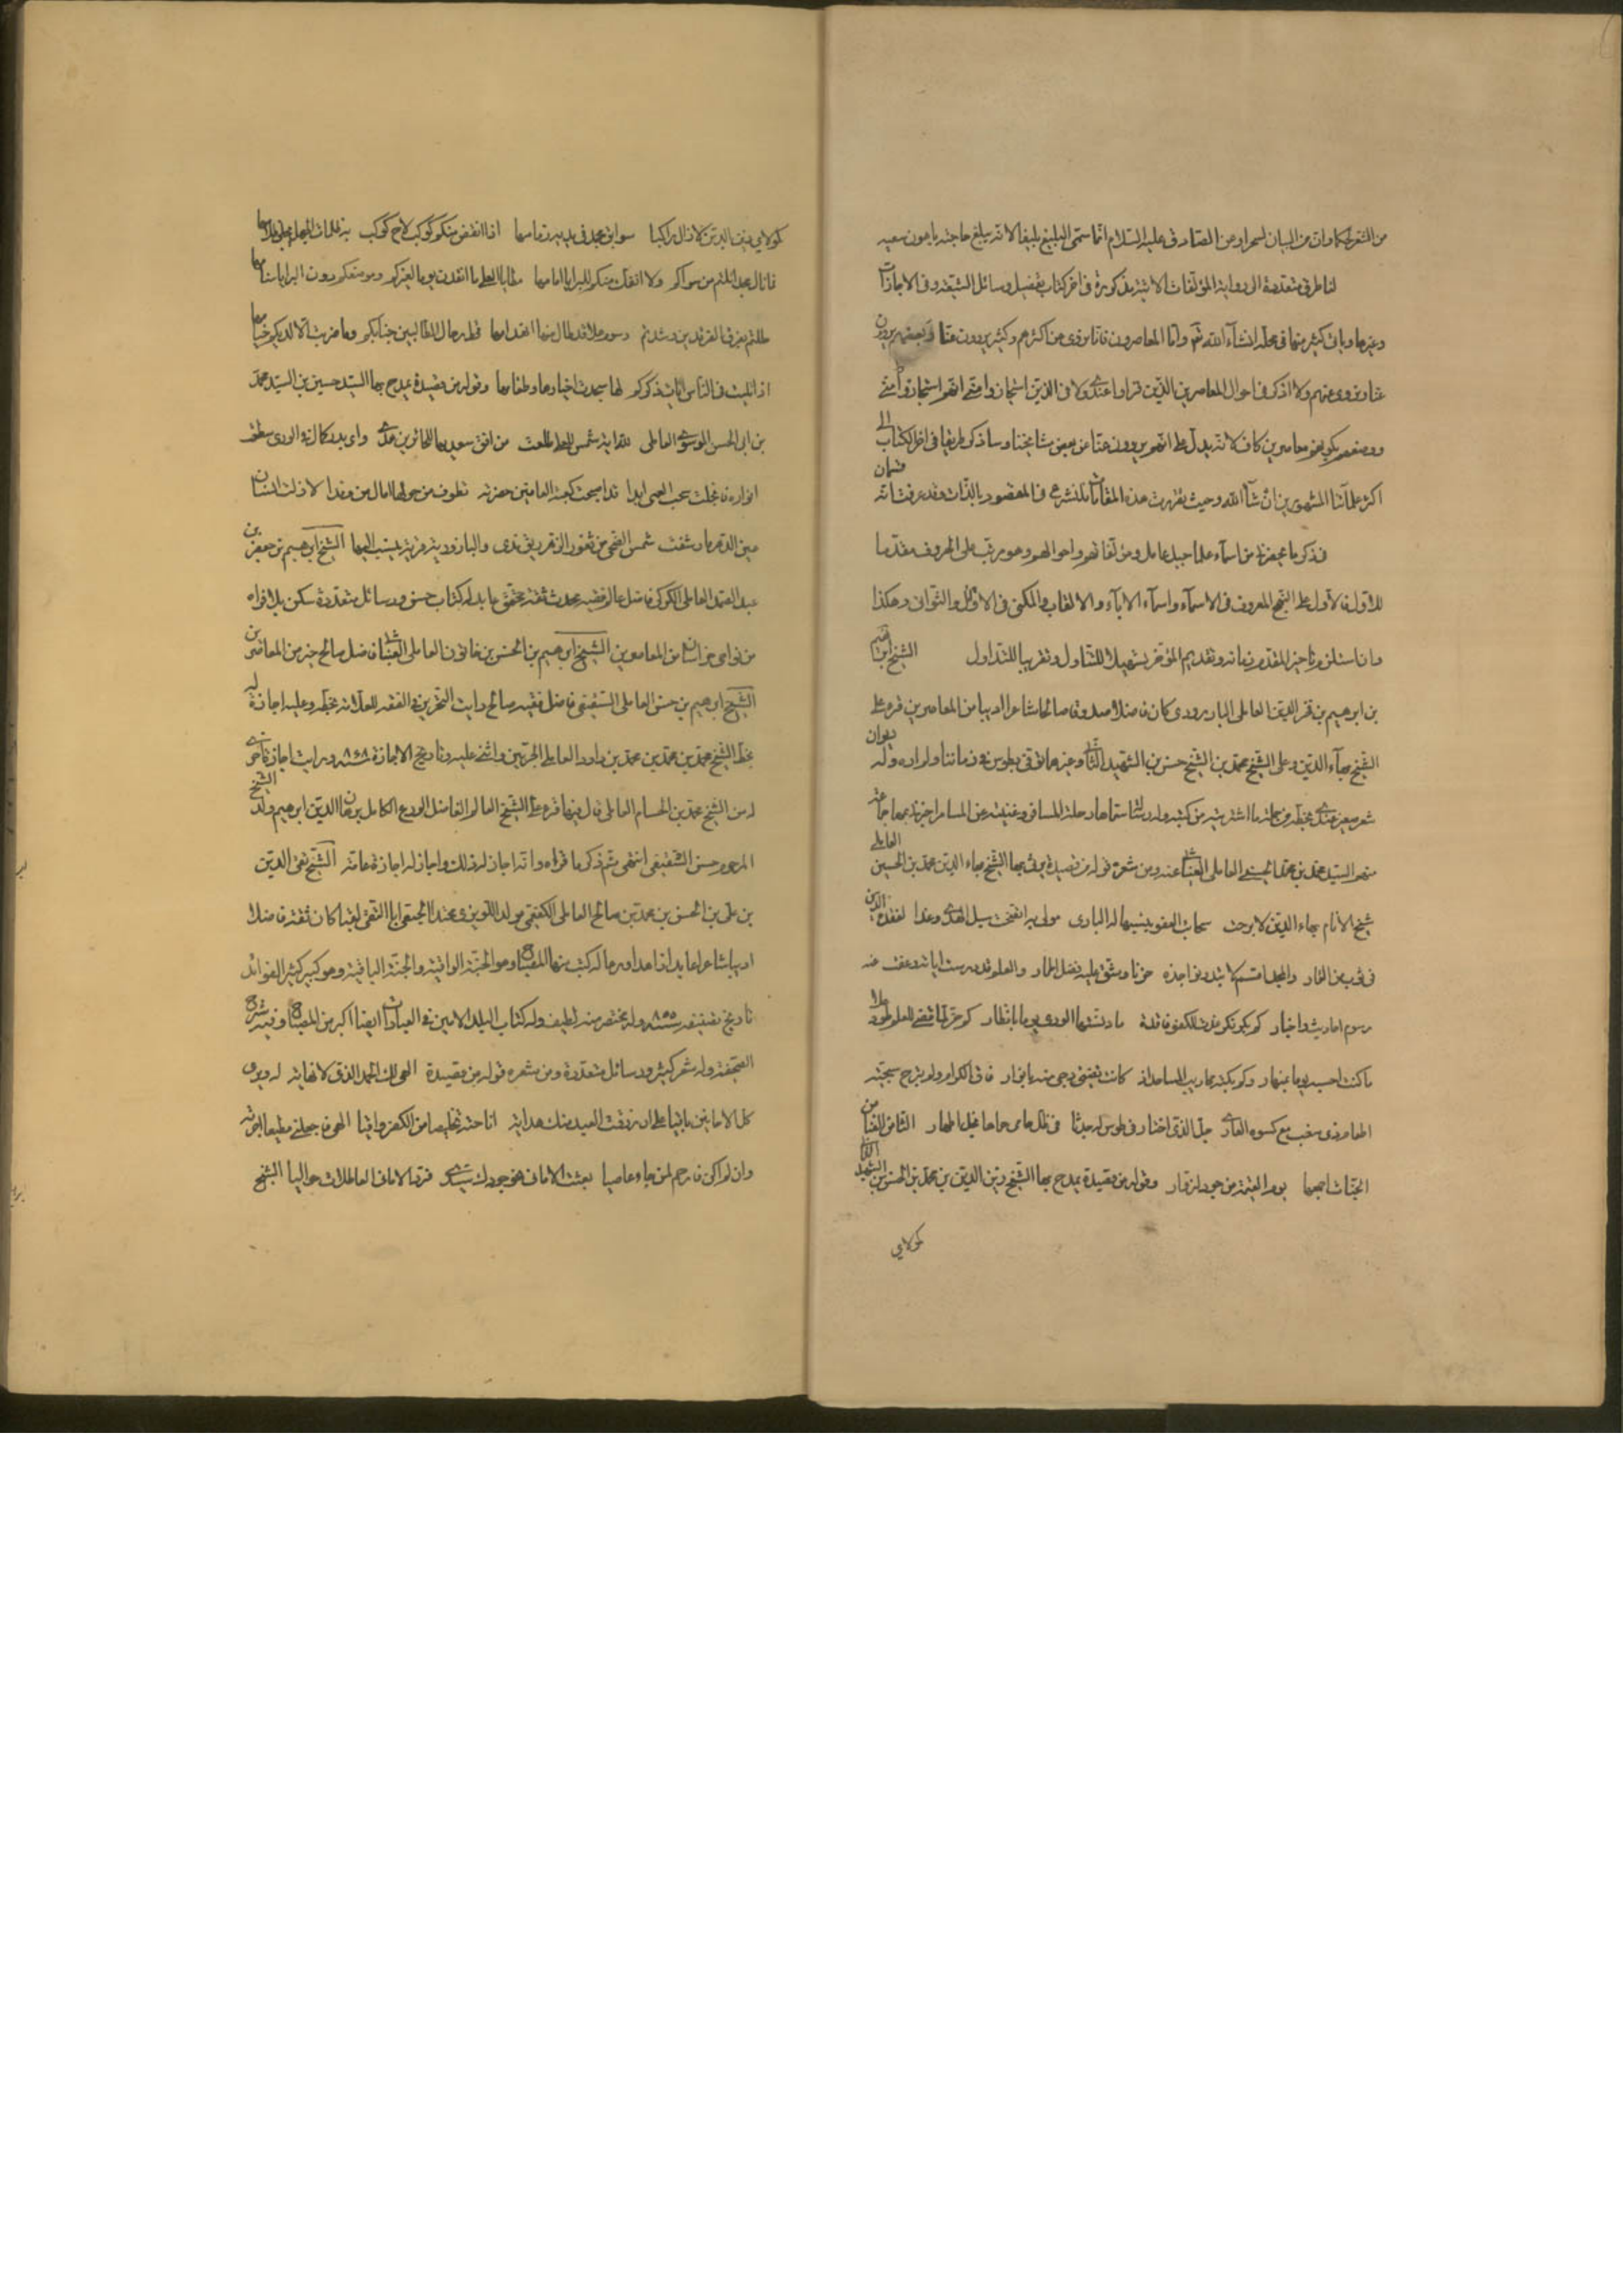 من الشعر لحكما وان من البيان لسحرا وعن الصادق عليه السلام انما سمى البليغ بليغا لانه يبلغ حاجته باهون سعيه
لنا طرق متعددة الى رواية المؤلفات الاتية مذكورة في اخر كتاب تفصيل وسائل الشيعة وفي الاجازات
وغيرها وياتي كثير منها في محله انشاء الله تع واما المعاصرون فانا نروي عن اكثرهم وكثير يروون عنا وبعضهم يروون
عنا ونروي عنهم ولا اذكر في احوال المعاصرين الذين قراوا عندي ولا في الذين استجازوا مني انهم استجازوا مني
ووصفهم بكونهم معاصرين كاف لانه يدل على انهم يروون عنا عن بعض مشايخنا وساذكر طريقا في اخر الكتاب الى
اكثر علمائنا المشهورين ان شاء الله وحيث تقررت هذه المقدمات فلنشرع في المقصود بالذات وقد عرفت انه قسمان
في ذكر ما يحضرني من اسماء علماء جبل عامل ومؤلفاتهم واحوالهم وهو مرتب على الحروف مقدما
للاول فالاول على النهج المعروف في الاسماء واسماء الاباء والالقاب والكنى في الاوائل والثواني وهكذا
وان استلزم تاخير المقدم زمانه وتقديم المؤخر تسهيلا للتناول وتقريبا للتداول الشيخ ابراهيم
بن ابرهيم بن فخر الدين العاملي البازوري كان فاضلا صدوقا صالحا شاعرا اديبا من المعاصرين قرء على
الشيخ بهاء الدين وعلى الشيخ محمد بن الشيخ حسن بن الشهيد الثاني وغيرهما توفي بطوس في زماننا ولم اره وله ديوان
شعر صغير عندي بخطه من جملة ما اشتريته من كتبه وله رسالة سماها رحلة المسافر وغنية عن المسامر اخبرنا بها جماعة
منهم السيد محمد بن محمد الحسيني العاملي العيناثي عنه ومن شعره قوله من قصيدة يرثي بها الشيخ بهاء الدين محمد بن الحسين العاملي
شيخ الانام بهاء الدين لا برحت سحائب العفو ينشيها له الباري مولى به اتضحت سبل الهدى وغدا لفقده الدين
في ثوب من القار والمجد اقسم لا تبدو نواجذه حزنا وشق عليه فضل اطمار والعلم قد درست اياته وعفت عنه
رسوم احاديث واخبار كم بكر فكر غدت للكفو فاقدة ما دنستها الورى يوما بانظار كم خر لما قضى للعلم طود علا
ما كنت احسبه يوما بمنهار وكم بكته محاريب المساجد اذ كانت تضيء دجى منه بانوار فاق الكرام ولم تبرح سجيته
اطعام ذي سغب مع كسوة العاري جل الذي اختار في طوس له جدثا في ظل حامي حماها نجل اطهار الثامن الضامن
الجنات اجمعها يوم القيمة من جود لزوار وقوله من قصيدة يمدح بها الشيخ زين الدين بن محمد بن الحسن بن الشهيد الثاني
كمولاي
كمولاي زين الدين لا زال راكبا سوابق مجد في يديه زمامها اذا انقض منكم كوكب لاح كوكب به ظلمات الجهل يجلى ظلامها
فما نال مجدا نلتم من سواكم ولا انفك منكم للبرايا امامها مطايا العلى ما انقدن يوما لغيركم وموضعكم دون البرايا سنامها
حللتم بفرق الفرقدين وشدتم رسوم علا قد طال منها انهدامها فحط رحال الطالبين جنابكم وما ضربت الا لديكم خيامها
اذا تليت في الناس ايات ذكركم لها سجدت اخيارها وطغامها وقوله من قصيدة يمدح بها السيد حسين بن السيد محمد
بن ابي الحسن الموسوي العاملي لله اية شمس للعلى طلعت من افق سعد بها للحائرين هدى واي بدر كمال في الورى سطعت
انواره فانجلت سحب العمى ابدا قد اصبحت كعبة العافين حضرته تطوف من حولها امال من وفدا لا زلت انسان
عين الدهر ما رشفت شمس الضحى من ثغور الزهر ريق ندى والبازورية قرية ينسب اليها الشيخ ابرهيم بن جعفر بن
عبد الصمد العاملي الكركي فاضل عالم فقيه محدث ثقة محقق عابد له كتاب حسن ورسائل متعددة سكن بلد فراه
من نواحي خراسان من المعاصرين الشيخ ابرهيم بن الحسن بن خاتون العاملي العيناثي فاضل صالح خير من المعاصرين
الشيخ ابرهيم بن حسن العاملي الشقيفي فاضل فقيه صالح رايت التحرير في الفقه للعلامة بخطه وعليه اجازة له
بخط الشيخ محمد بن محمد بن محمد بن داود العاملي الجزيني واثنى عليه وتاريخ الاجازة ٨٦٨ ورايت اجازة اخرى
له من الشيخ محمد بن الحسام العاملي قال فيها قرء علي الشيخ العالم الفاضل الورع الكامل برهان الدين ابرهيم ولد الشيخ
المرحوم حسن الشقيفي انتهى ثم ذكر ما قراه وانه اجاز له ذلك واجاز له اجازة عامة الشيخ تقي الدين
بن علي بن الحسن بن محمد بن صالح العاملي الكفعمي مولدا اللويزي محتدا الجبعي ابا التقي لقبا كان ثقة فاضلا
اديبا شاعرا عابدا زاهدا ورعا له كتب منها المصباح وهو الجنة الواقية والجنة الباقية وهو كبير كثير الفوائد
تاريخ تصنيفه سنة ٨٩٥ وله مختصر منه لطيف وله كتاب البلد الامين في العبادات ايضا اكبر من المصباح وفيه شرح
الصحيفة وله شعر كثير ورسائل متعددة ومن شعره قوله من قصيدة الهي لك الحمد الذي لا نهاية له ويرى
كل الاحايين باقيا على ان رزقت العبد منك هداية اتاحته تخليصا من الكفر واقيا الهي فاجعلني مطيعا اجرته
وان لم اكن فارحم لمن جاء عاصيا بعثت الاماني نحو جودك سيدي فرد الاماني العاطلات حواليا الشيخ